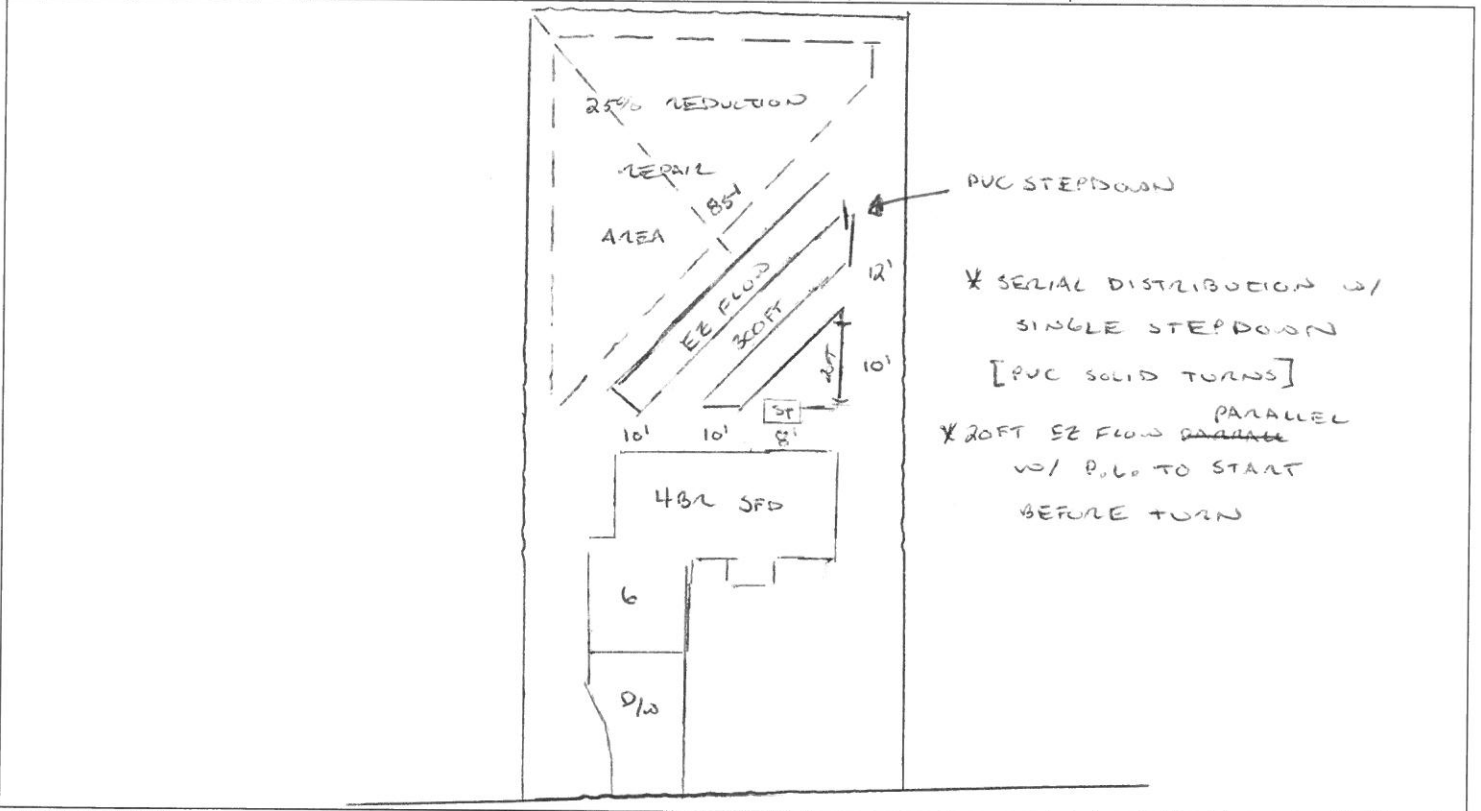 25% REDUCTION
REPAIR
AREA
85'
EZ FLOW
300FT
PVC STEPDOWN
12'
10'
* SERIAL DISTRIBUTION W/
SINGLE STEPDOWN
[PVC SOLID TURNS]
* 20FT EZ FLOW PARALLEL
W/ P.L. TO START
BEFORE TURN
ST
10'
10'
8'
4BR SFD
G
D/W